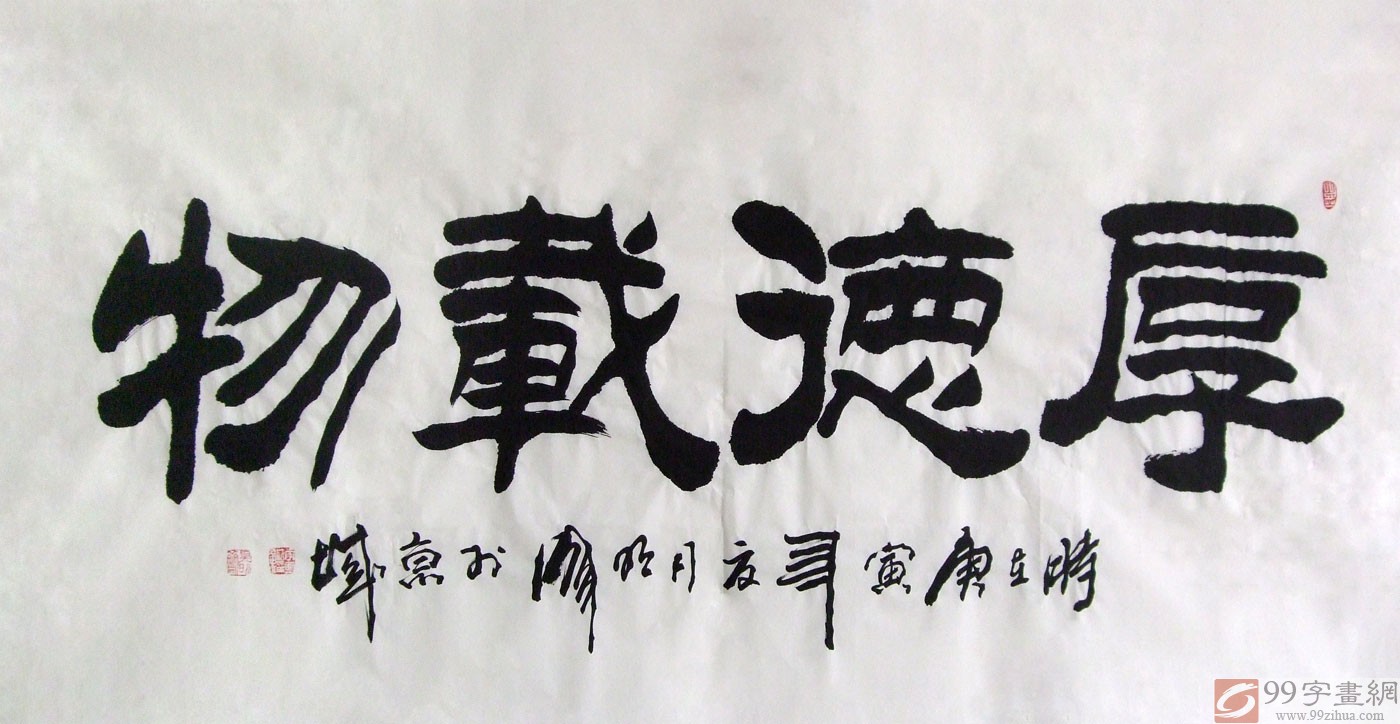 厚德載物
時在庚寅年夏月於京城
99字畫網
www.99zihua.com